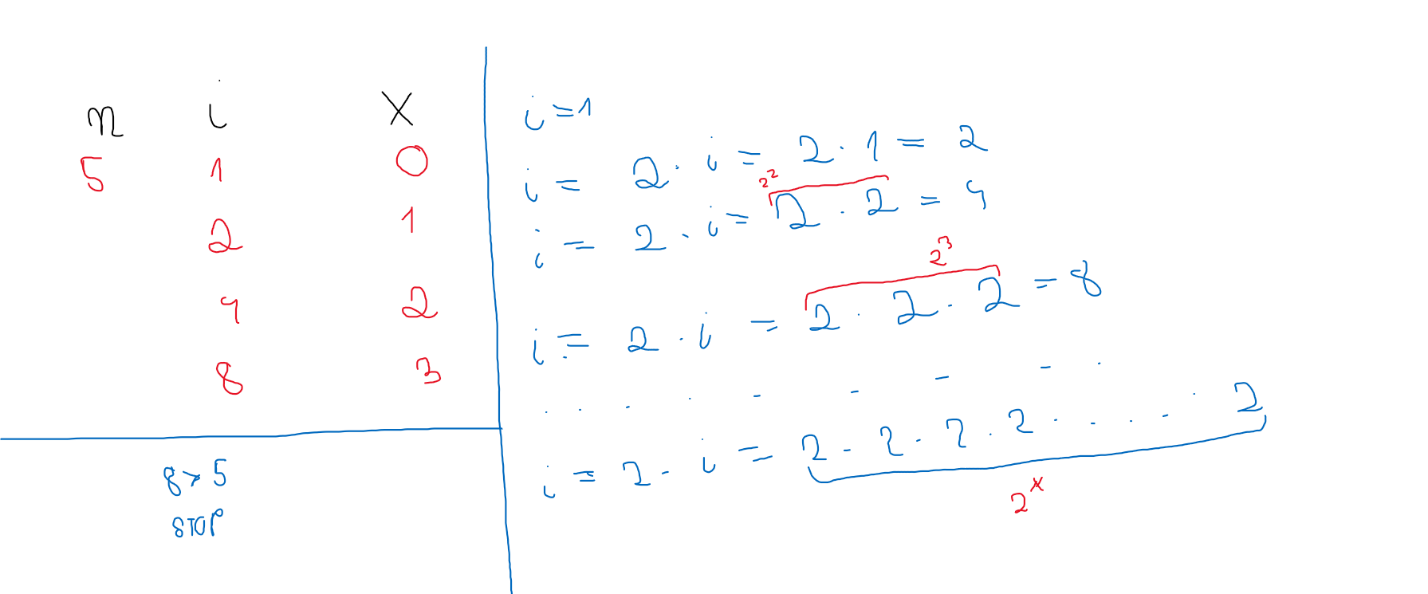 n i x
5 1 0
2 1
4 2
8 3
8 > 5
STOP
i = 1
i = 2 · i = 2 · 1 = 2
2²
i = 2 · i = 2 · 2 = 4
2³
i = 2 · i = 2 · 2 · 2 = 8
. . - . - - - - .
i = 2 · i = 2 · 2 · 2 · 2 · . . . · 2
2ˣ